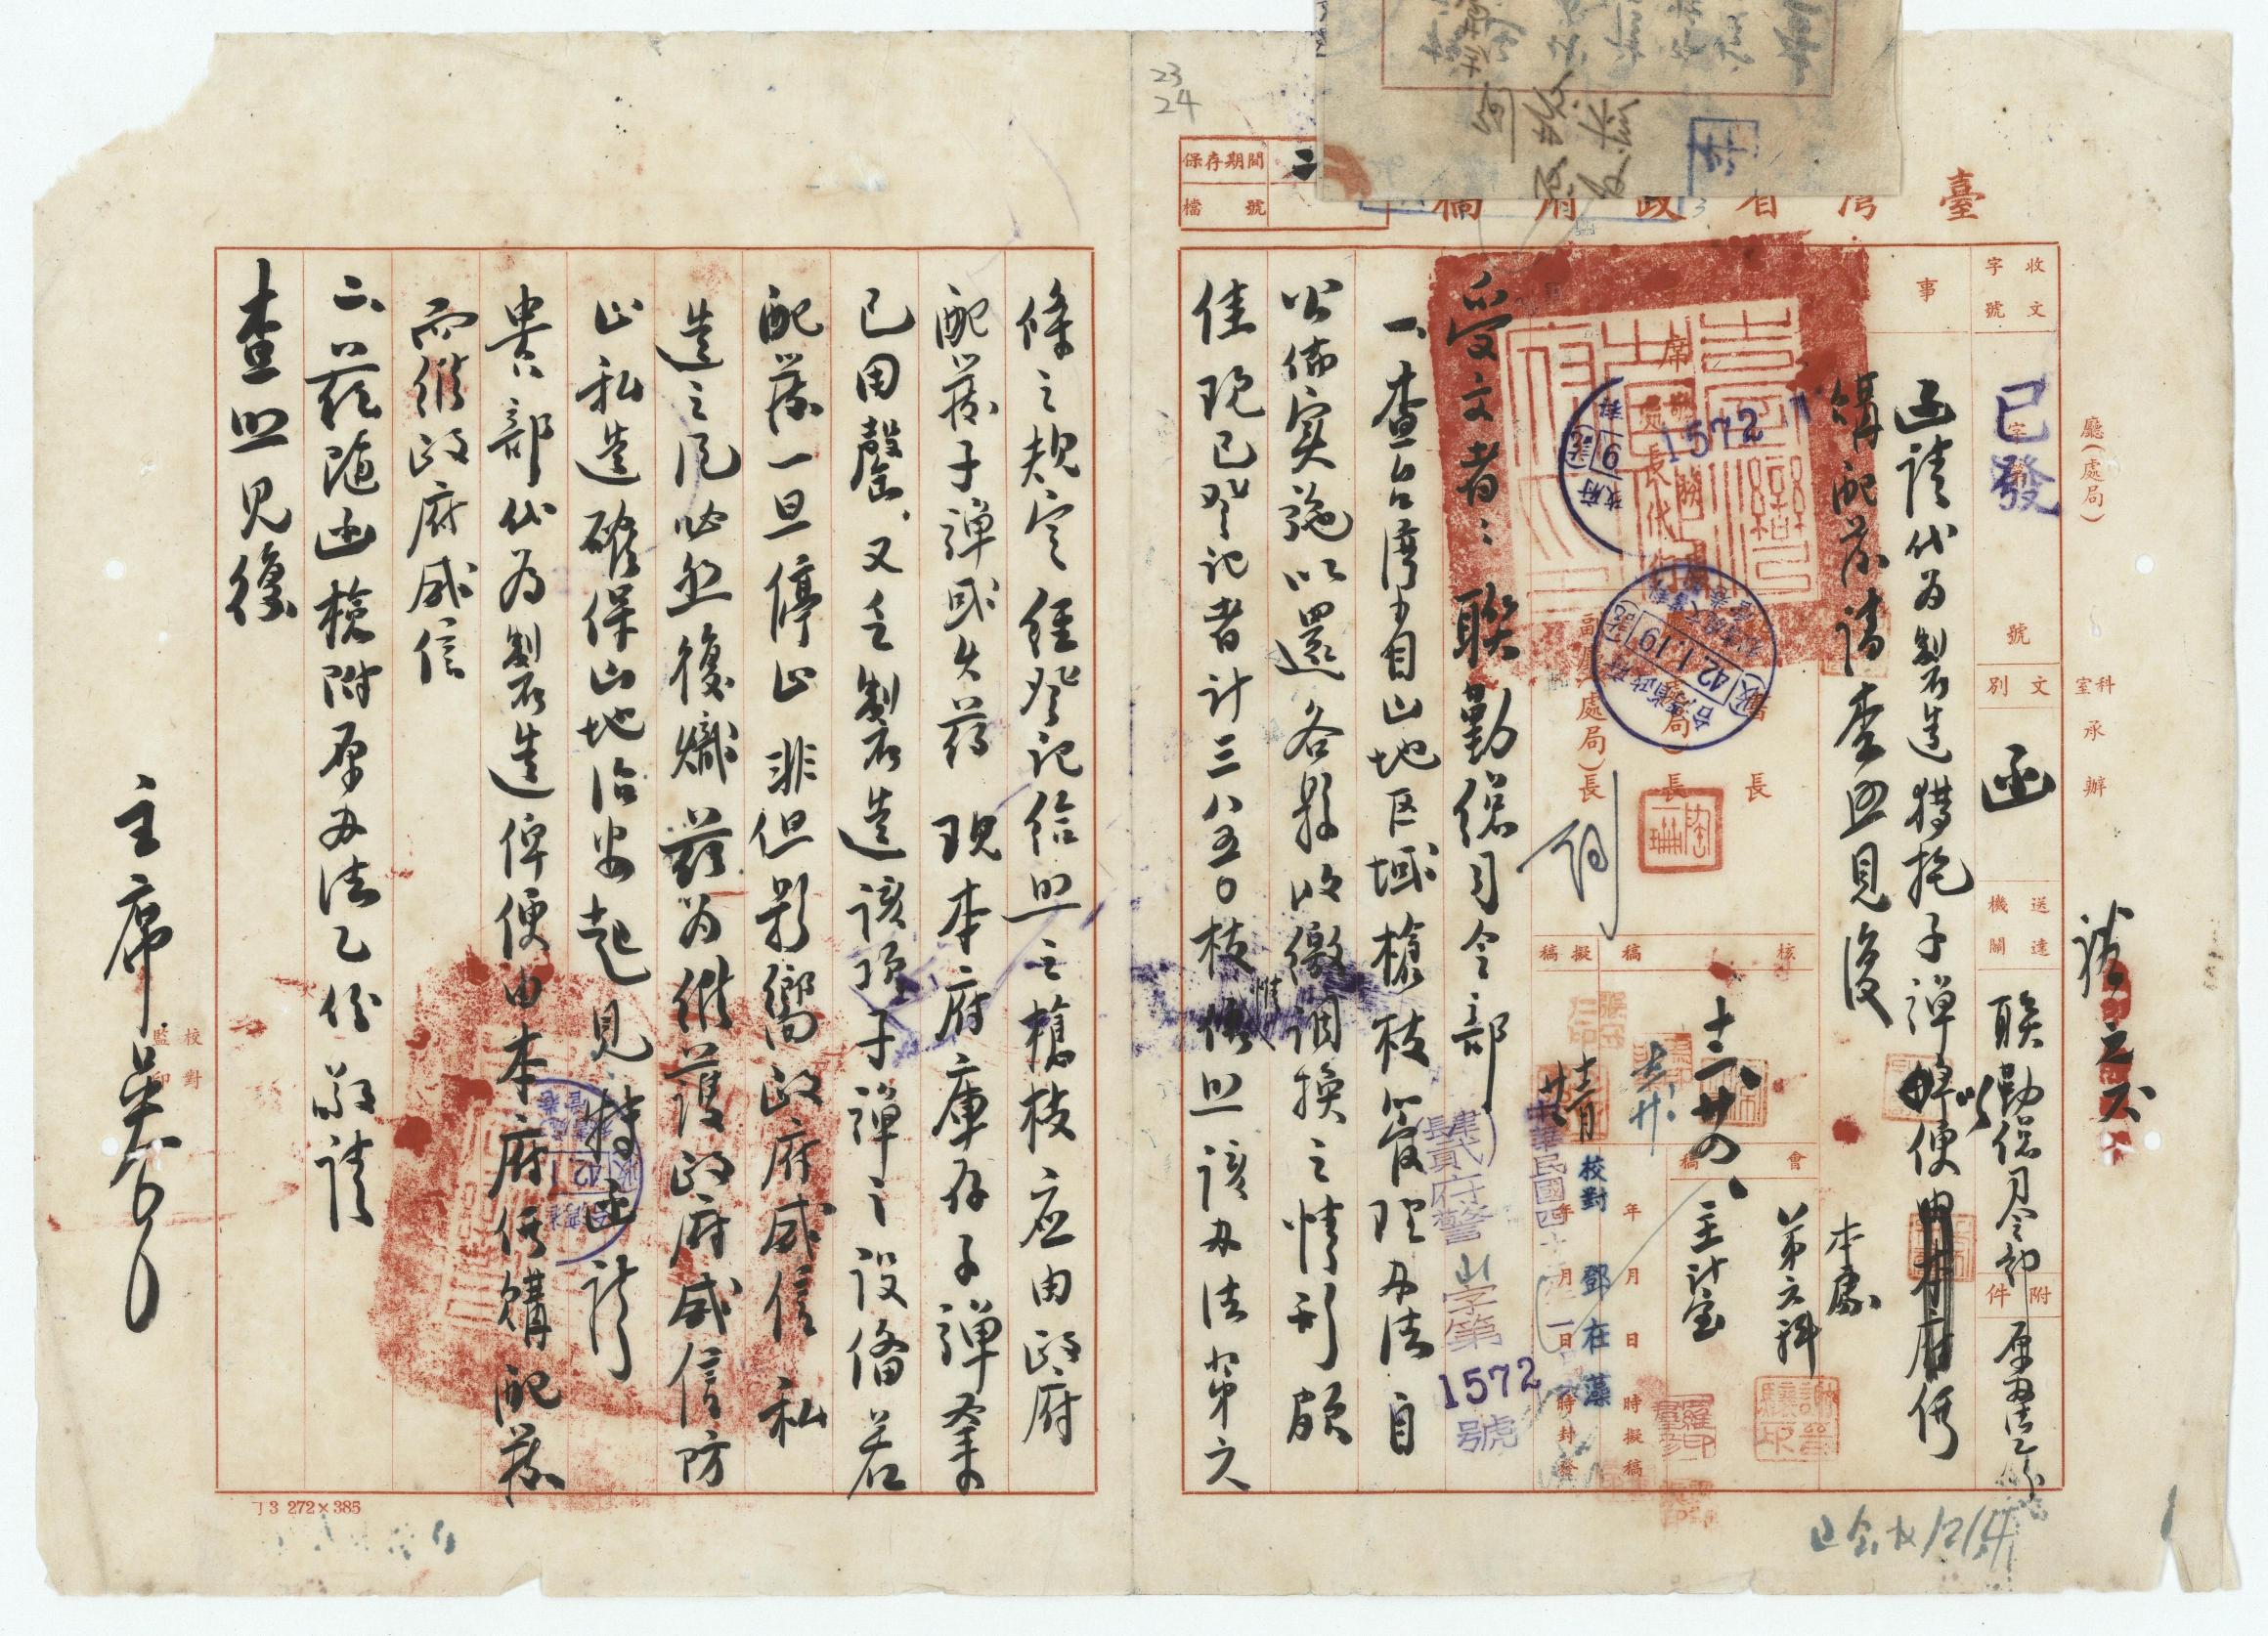 23
24
保存期間 二
檔號
臺灣省政府稿
廳(處局)
科室承辦
收文字號
字號
已發
文別 函
送達機關 聯勤總司令部
附件 原辦法乙份
事
函請代為製造獵槍子彈以便價
購配發請查照見復
本處
第六科
主計室
會稿
核稿
擬稿
副處局長
年月日時擬稿
年月日時封發
校對 鄧在藻
肆貳府警山字第1572號
台灣省政府
42.1.19
受文者:聯勤總司令部
一、查台灣省山地區域槍枝管理辦法自
公佈實施以還各縣收繳調換之情形頗
佳現已登記者計三八五〇枝惟照該辦法第六
條之規定經登記給照之槍枝应由政府
配發子彈或火药現本府庫存子彈業
已用罄、又乏製造該項子彈之設備若
配發一旦停止非但影響政府威信私
造之風必然復熾茲為維護政府威信防
止私造確保山地治安起見特函請
貴部代為製造俾便由本府價購配發
而維政府威信
二、茲隨函檢附原办法乙份敬請
查照見復
主席吳〇〇
校對
監印
丁3 272×385